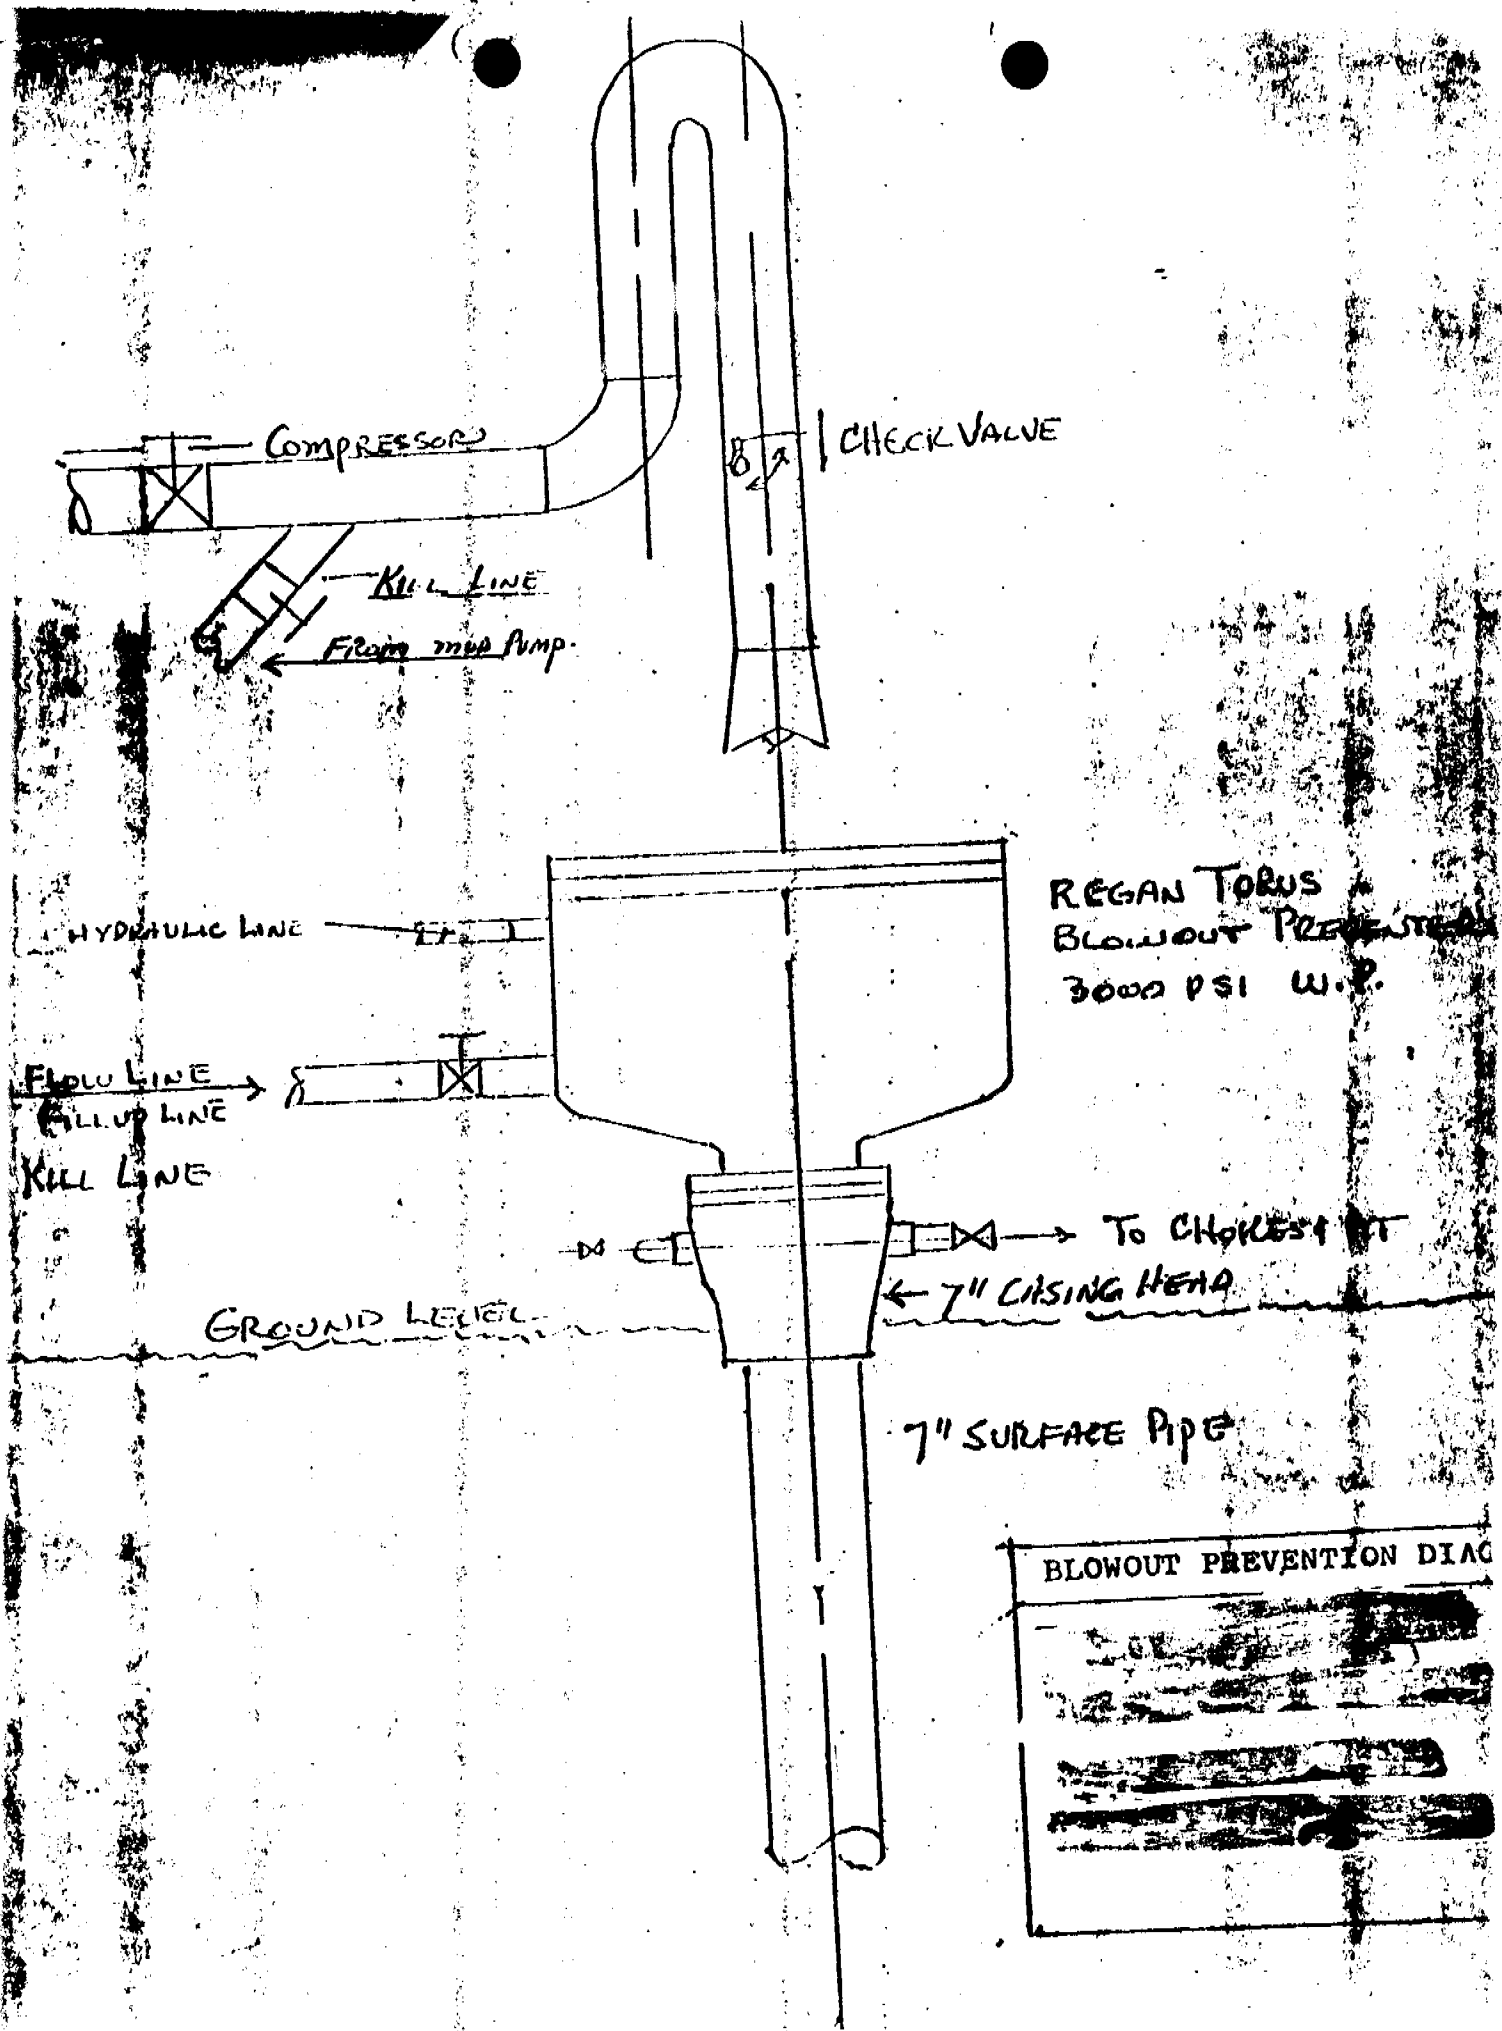 COMPRESSOR
CHECK VALVE
KILL LINE
FROM MUD PUMP.
REGAN TORUS
BLOWOUT PREVENTER
3000 PSI W.P.
HYDRAULIC LINE
FLOW LINE
FILLUP LINE
KILL LINE
TO CHOKES & PIT
7" CASING HEAD
GROUND LEVEL
7" SURFACE PIPE
BLOWOUT PREVENTION DIAG